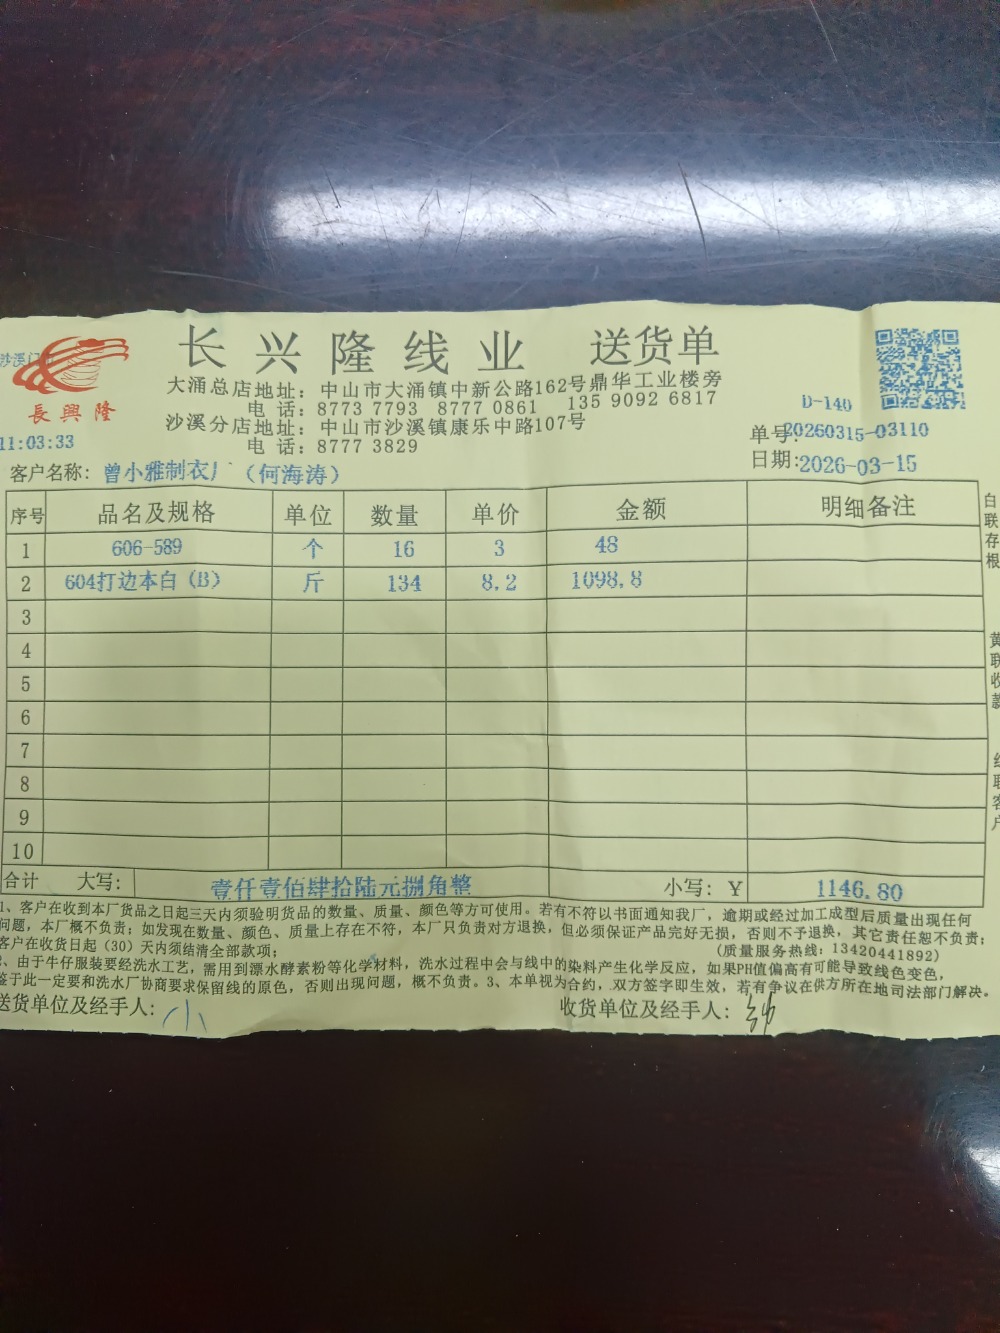 长兴隆线业 送货单
沙溪门
長興隆
大涌总店地址：中山市大涌镇中新公路162号鼎华工业楼旁
电 话：8773 7793 8777 0861 135 9092 6817
沙溪分店地址：中山市沙溪镇康乐中路107号
电 话：8777 3829
D-140
11:03:33
单号:20260315-03110
客户名称：曾小雅制衣厂（何海涛）
日期:2026-03-15
序号 品名及规格 单位 数量 单价 金额 明细备注
1 606-589 个 16 3 48
2 604打边本白（B） 斤 134 8.2 1098.8
3
4
5
6
7
8
9
10
合计 大写： 壹仟壹佰肆拾陆元捌角整 小写：￥ 1146.80
白联存根
黄联收款
红联客户
1、客户在收到本厂货品之日起三天内须验明货品的数量、质量、颜色等方可使用。若有不符以书面通知我厂，逾期或经过加工成型后质量出现任何
问题，本厂概不负责；如发现在数量、颜色、质量上存在不符，本厂只负责对方退换，但必须保证产品完好无损，否则不予退换，其它责任恕不负责；
客户在收货日起（30）天内须结清全部款项； （质量服务热线：13420441892）
2、由于牛仔服装要经洗水工艺，需用到漂水酵素粉等化学材料，洗水过程中会与线中的染料产生化学反应，如果PH值偏高有可能导致线色变色，
鉴于此一定要和洗水厂协商要求保留线的原色，否则出现问题，概不负责。3、本单视为合约，双方签字即生效，若有争议在供方所在地司法部门解决。
送货单位及经手人： 收货单位及经手人：